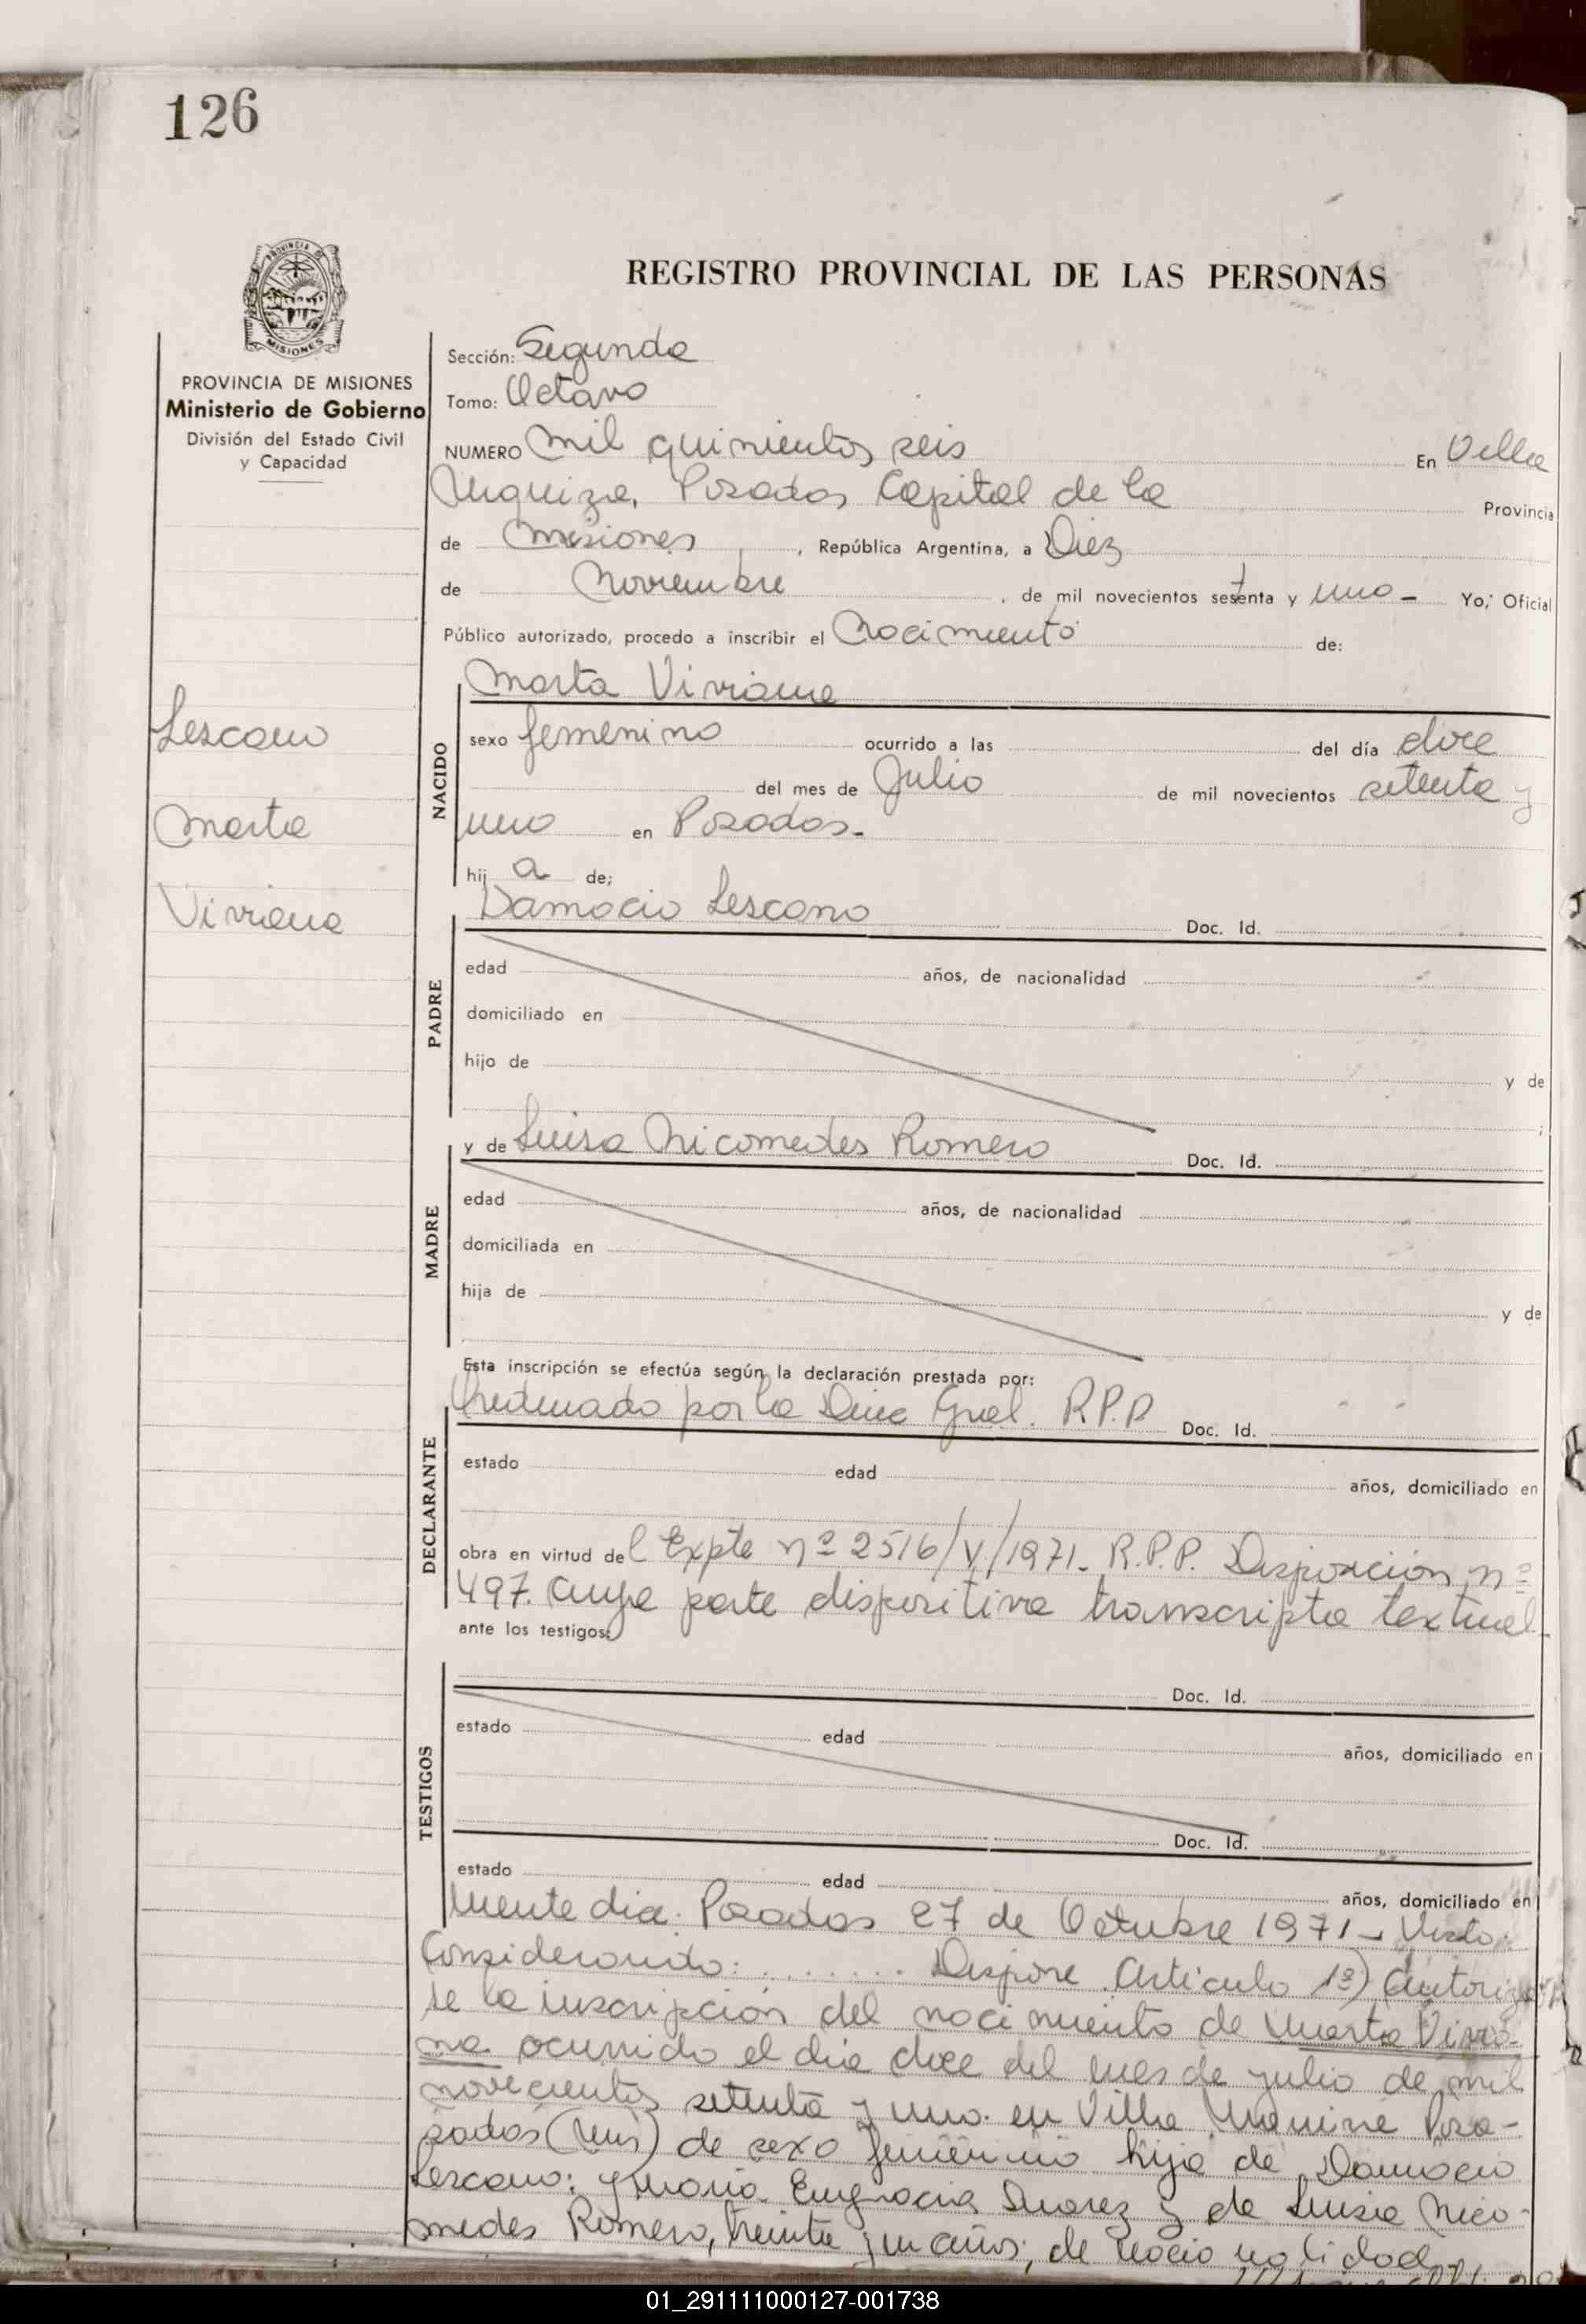 126
REGISTRO PROVINCIAL DE LAS PERSONAS
PROVINCIA DE MISIONES
Ministerio de Gobierno
División del Estado Civil
y Capacidad
Sección: Segunda
Tomo: Octavo
NUMERO Mil quinientos seis En Villa
Urquiza, Posadas Capital de la Provincia
de Misiones, República Argentina, a Diez
de Noviembre, de mil novecientos setenta y uno - Yo, Oficial
Público autorizado, procedo a inscribir el Nacimiento de:
Lescano
Marta
Viviana
NACIDO
Marta Viviana
sexo femenino ocurrido a las del día doce
del mes de Julio de mil novecientos setenta y
uno en Posadas.
hija de;
PADRE
Damacio Lescano Doc. Id.
edad años, de nacionalidad
domiciliado en
hijo de y de
;
MADRE
y de Luisa Nicomedes Romero Doc. Id.
edad años, de nacionalidad
domiciliada en
hija de y de
Esta inscripción se efectúa según la declaración prestada por:
DECLARANTE
Ordenado por la Direc Gral. R.P.P Doc. Id.
estado edad años, domiciliado en
obra en virtud del Expte nº 2516/V/1971. R.P.P. Disposición nº
497. Cuya parte dispositiva transcripta textual-
ante los testigos:
TESTIGOS
Doc. Id.
estado edad años, domiciliado en
Doc. Id.
estado edad años, domiciliado en
mente dice: Posadas 27 de Octubre 1971 - Visto:
Considerando: ....... Dispone Artículo 1º)
se la inscripción del nacimiento de Marta Vivia-
na ocurrido el día doce del mes de julio de mil
novecientos setenta y uno en Villa Posa-
sadas de sexo femenino hija de Damacio
Lescano; y María Engracia Suarez y de Luisa Nico-
medes Romero, treinta y un años; de nacionalidad
01_291111000127-001738